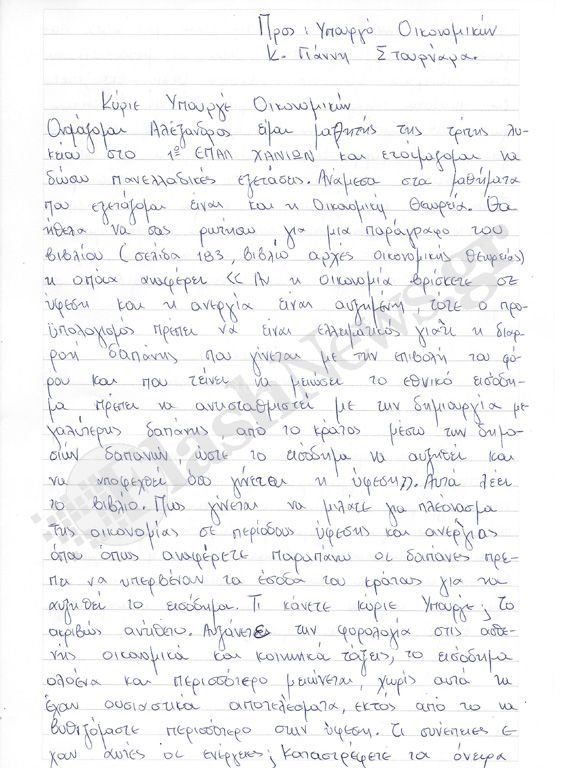 Προς: Υπουργό Οικονομικών
κ. Γιάννη Στουρνάρα.
Κύριε Υπουργέ Οικονομικών
Ονομάζομαι Αλέξανδρος είμαι μαθητής της τρίτης λυ-
κείου στο 1ο ΕΠΑΛ ΧΑΝΙΩΝ και ετοιμάζομαι να
δώσω πανελλαδικές εξετάσεις. Ανάμεσα στα μαθήματα
που εξετάζομαι είναι και η Οικονομική Θεωρεία. Θα
ήθελα να σας ρωτήσω για μια παράγραφο του
βιβλίου (σελίδα 183, βιβλίο αρχές οικονομικής θεωρείας)
η οποία αναφέρει << Αν η οικονομία βρίσκετε σε
ύφεση και η ανεργία είναι αυξημένη, τότε ο προ-
ϋπολογισμός πρέπει να είναι ελλειματικός γιατί η διαρ-
ροή δαπάνης που γίνεται με την επιβολή του φό-
ρου και που τείνει να μειώσει το εθνικό εισόδη-
μα πρέπει να αντισταθμιστεί με την δημιουργία με-
γαλύτερης δαπάνης από το κράτος μέσω των δημο-
σιών δαπανών ώστε το εισόδημα να αυξηθεί και
να υποφεχθεί όσο γίνεται η ύφεση>>. Αυτά λέει
το βιβλίο. Πως γίνεται να μιλάτε για πλεόνασμα
της οικονομίας σε περίοδους ύφεσης και ανεργίας
όπου όπως αναφέρετε παραπάνω οι δαπάνες πρέ-
πει να υπερβένουν τα έσοδα του κράτους για να
αυξηθεί το εισόδημα. Τι κάνετε κύριε Υπουργέ; το
ακριβώς αντίθετο. Αυξάνετε την φορολογία στις ασθε-
νής οικονομικά και κοινωνικά τάξεις, το εισόδημα
ολοένα και περισσότερο μειώνεται, χωρίς αυτά να
έχουν ουσιαστικά αποτελέσματα, εκτός από το να
βυθιζόμαστε περισσότερο στην ύφεση. Τι συνέπειες έ-
χουν αυτές οι ενέργειες; Καταστρέφετε τα όνειρα
flashNews.gr